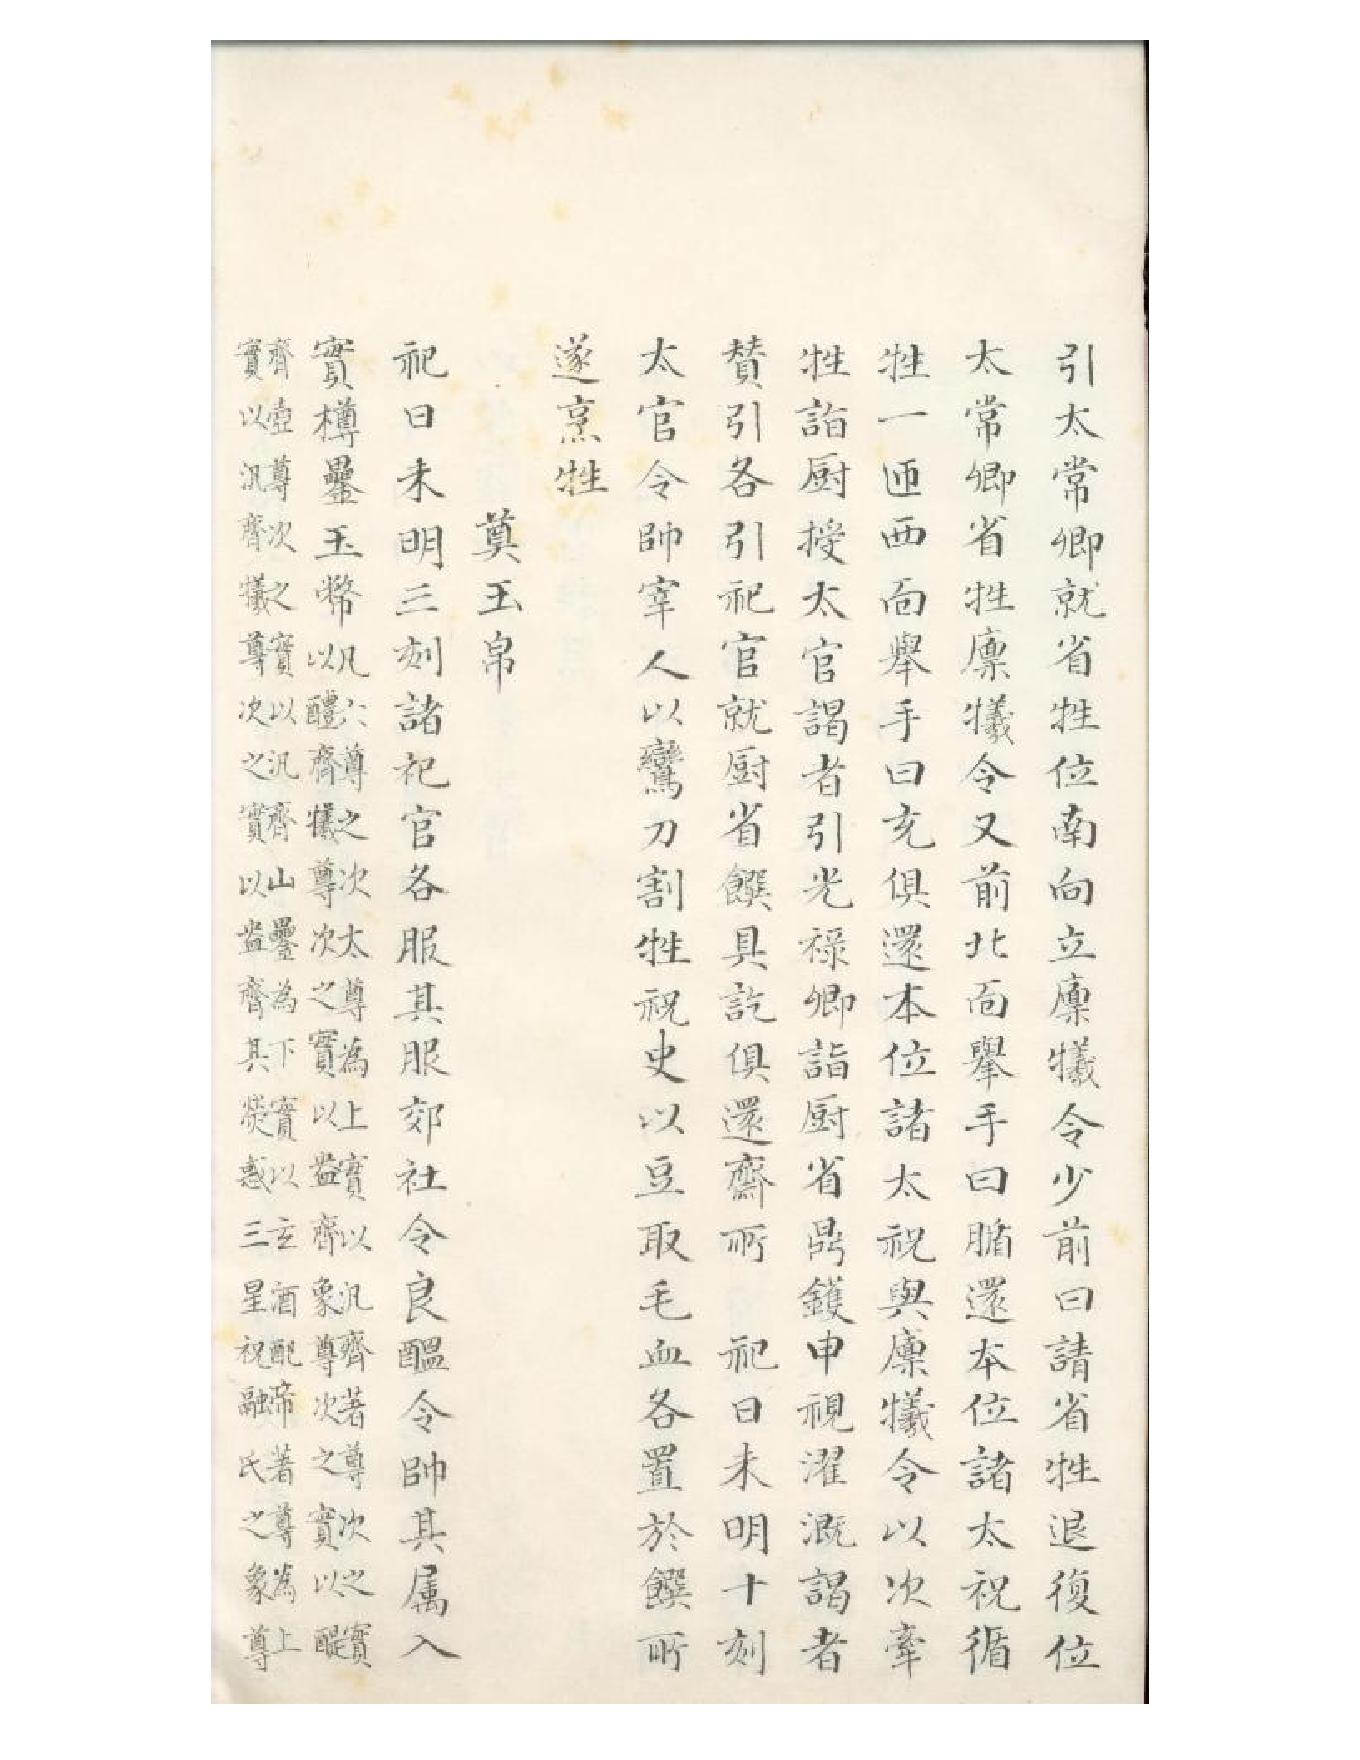 引太常卿就省牲位南向立廩犧令少前曰請省牲退復位
太常卿省牲廩犧令又前北面舉手曰腯還本位諸太祝循
牲一匝西面舉手曰充俱還本位諸太祝與廩犧令以次牽
牲詣厨授太官謁者引光祿卿詣厨省鼎鑊申視濯溉謁者
賛引各引祀官就厨省饌具訖俱還齋所　祀日未明十刻
太官令帥宰人以鸞刀割牲祝史以豆取毛血各置於饌所
遂烹牲
奠玉帛
祀日未明三刻諸祀官各服其服郊社令良醞令帥其属入
實樽罍玉幣凡六尊之次太尊為上實以汎齊著尊次之實
以醴齊犧尊次之實以盎齊象尊次之實以醍
齊壺尊次之實以汎齊山罍為下實以玄酒配帝著尊為上
實以汎齊犧尊次之實以盎齊其熒惑三星祝融氏之象尊